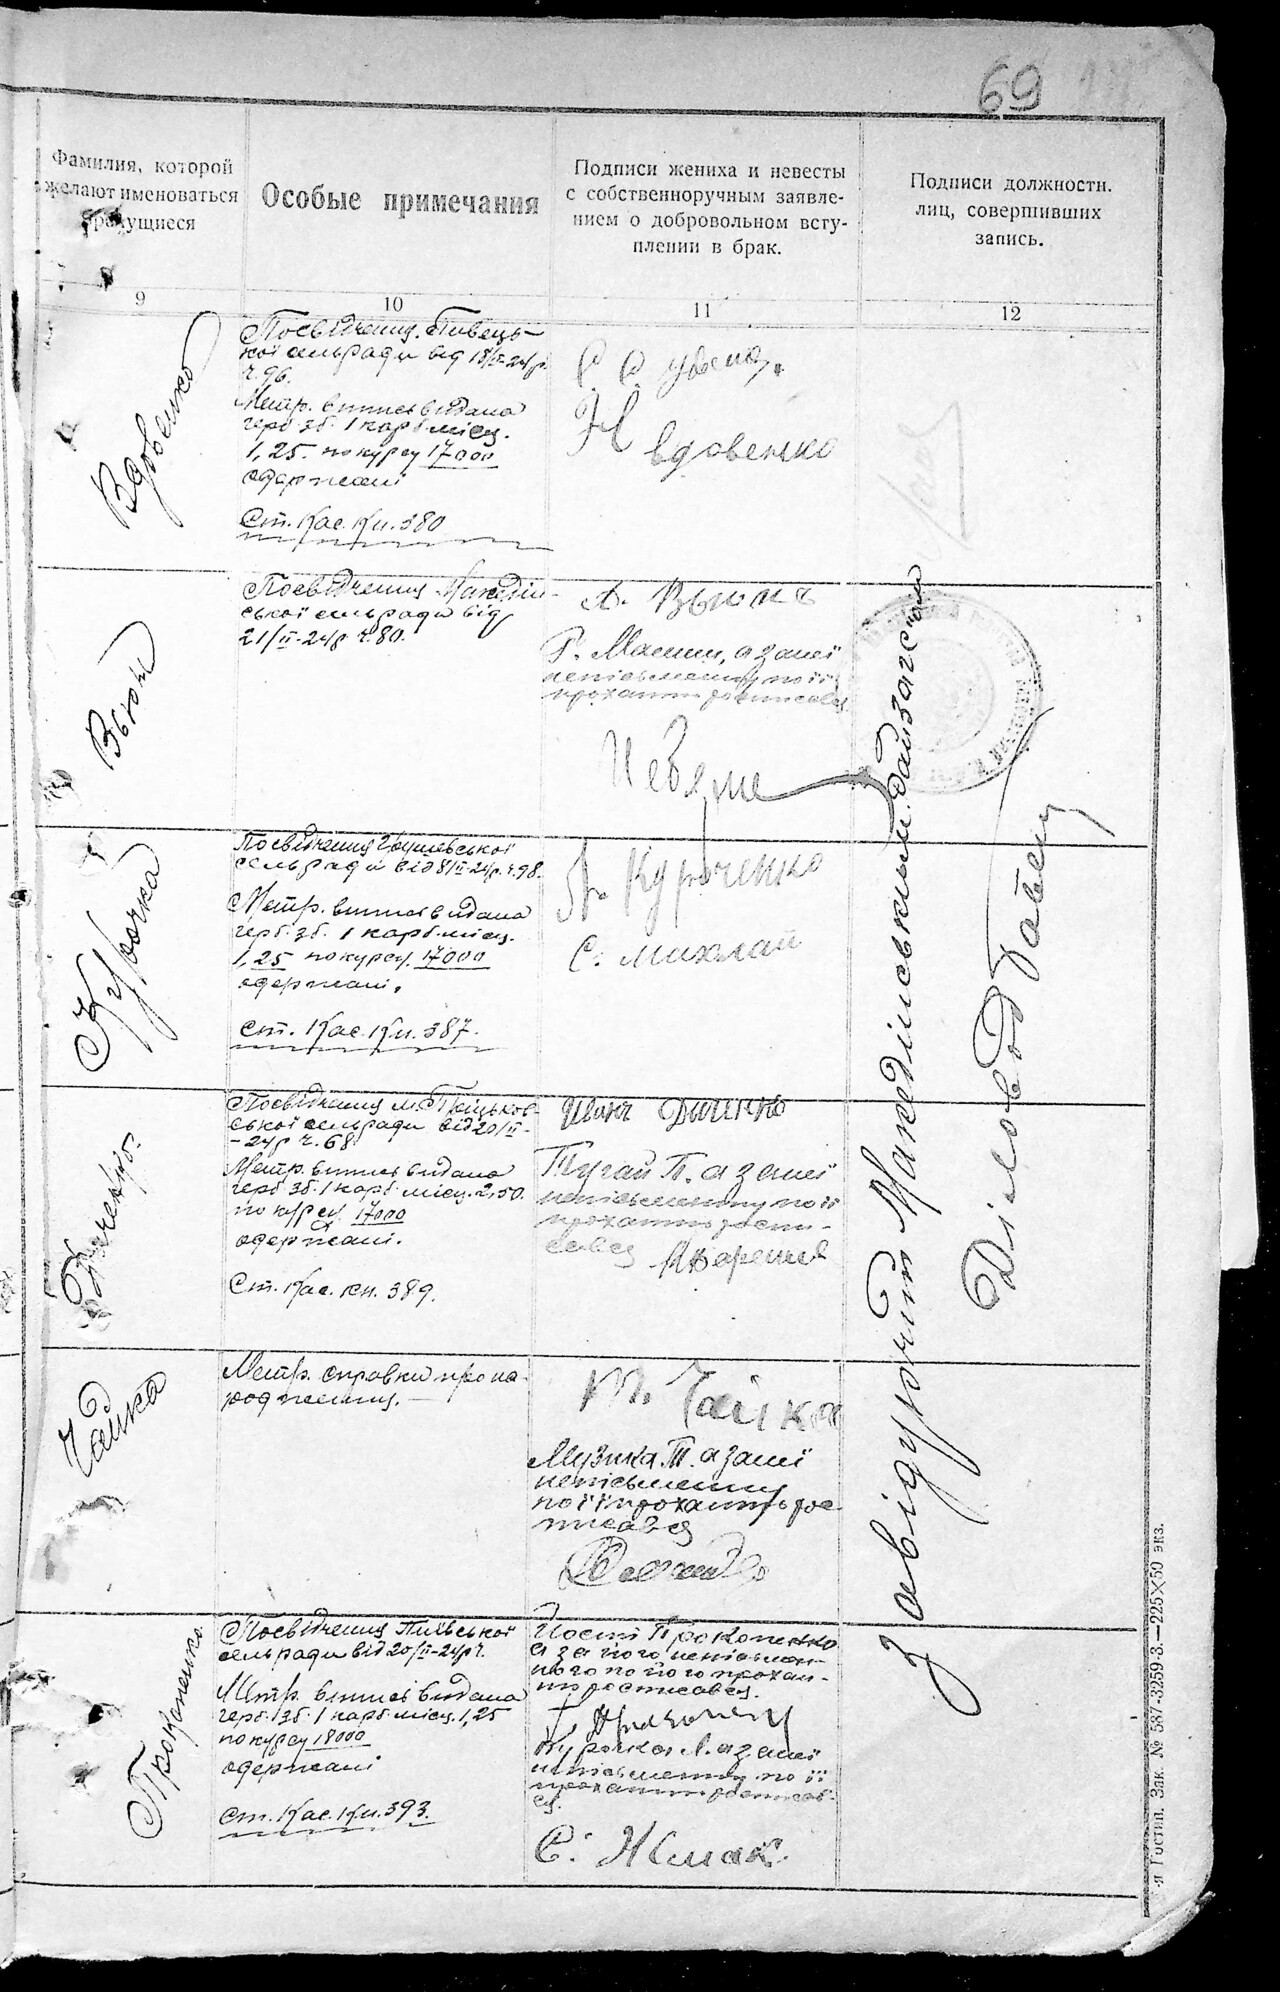 69
Фамилия, которой
желают именоваться
брачущиеся
Особые примечания
Подписи жениха и невесты
с собственноручным заявле-
нием о добровольном всту-
плении в брак.
Подписи должностн.
лиц, совершивших
запись.
9
10
11
12
Вдовенко
Посвідчення
кої сельради від
ч. 96.
Метр. випись видана
герб. зб. 1 карб. місц.
1,25. по курсу 17000
одержані
Ст. Кас. Кн. 380
Н Вдовенко
Вьюн
Посвідчення
ської сельради від
21/II-24р ч. 80.
А. Вьюнъ
а за неї
неписьменну по її
проханню росписався
Курочка
Посвідчення
сельради від 8/II-24р. ч. 98.
Метр. випись видана
герб. зб. 1 карб. місц.
1,25 по курсу 17000
одержані.
ст. Кас. Кн. 387.
Куроченко
С. Михлай
Посвідчення м.
ської сельради від 20/II-
-24р ч. 68
Метр. випись видана
герб. зб. 1 карб. місц. 2,50.
по курсу 17000
одержані.
Ст. Кас. кн. 389.
Иванъ
Тугай П. а за неї
неписьменну по її
проханню роспи-
сався
Чайка
Метр. справки про на-
родження.
Т. Чайка
Музика Т. а за неї
неписьменну
по її проханню рос-
писався
Прокопенко
Посвідчення
сельради від 20/II-24р ч.
Метр. випись видана
герб. зб. 1 карб. місц. 1,25
по курсу 18000
одержані
ст. Кас. Кн. 393.
Прокопенко
а за його неписьмен-
ного по його прохан-
ню росписався.
Курочка Л. а за неї
неписьменну по її
проханню росписав-
ся.
С.
Завідуючий Макединським Райзагс'ом
Діловод
-я Гостип. Зак. № 587-3259-3.—225×50 экз.